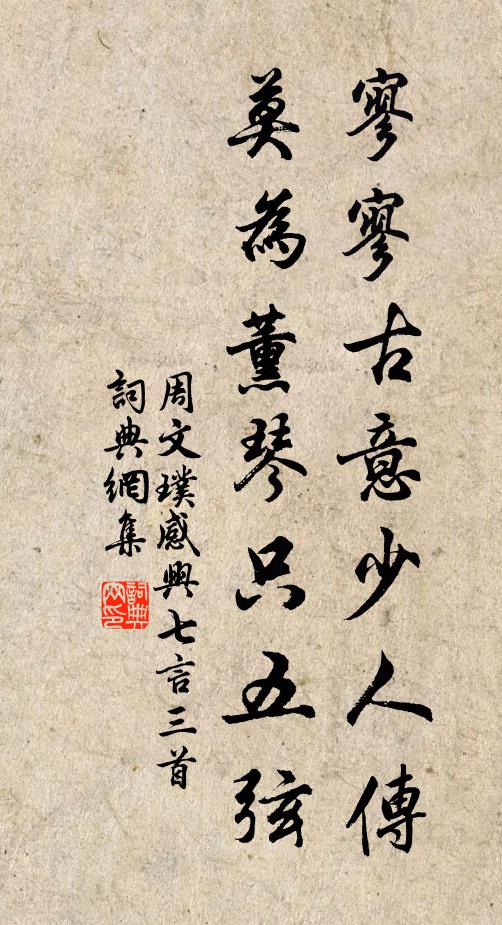 寥寥古意少人傳
莫為薰琴只五弦
周文璞感興七言三首
詞典網集
詞典網印